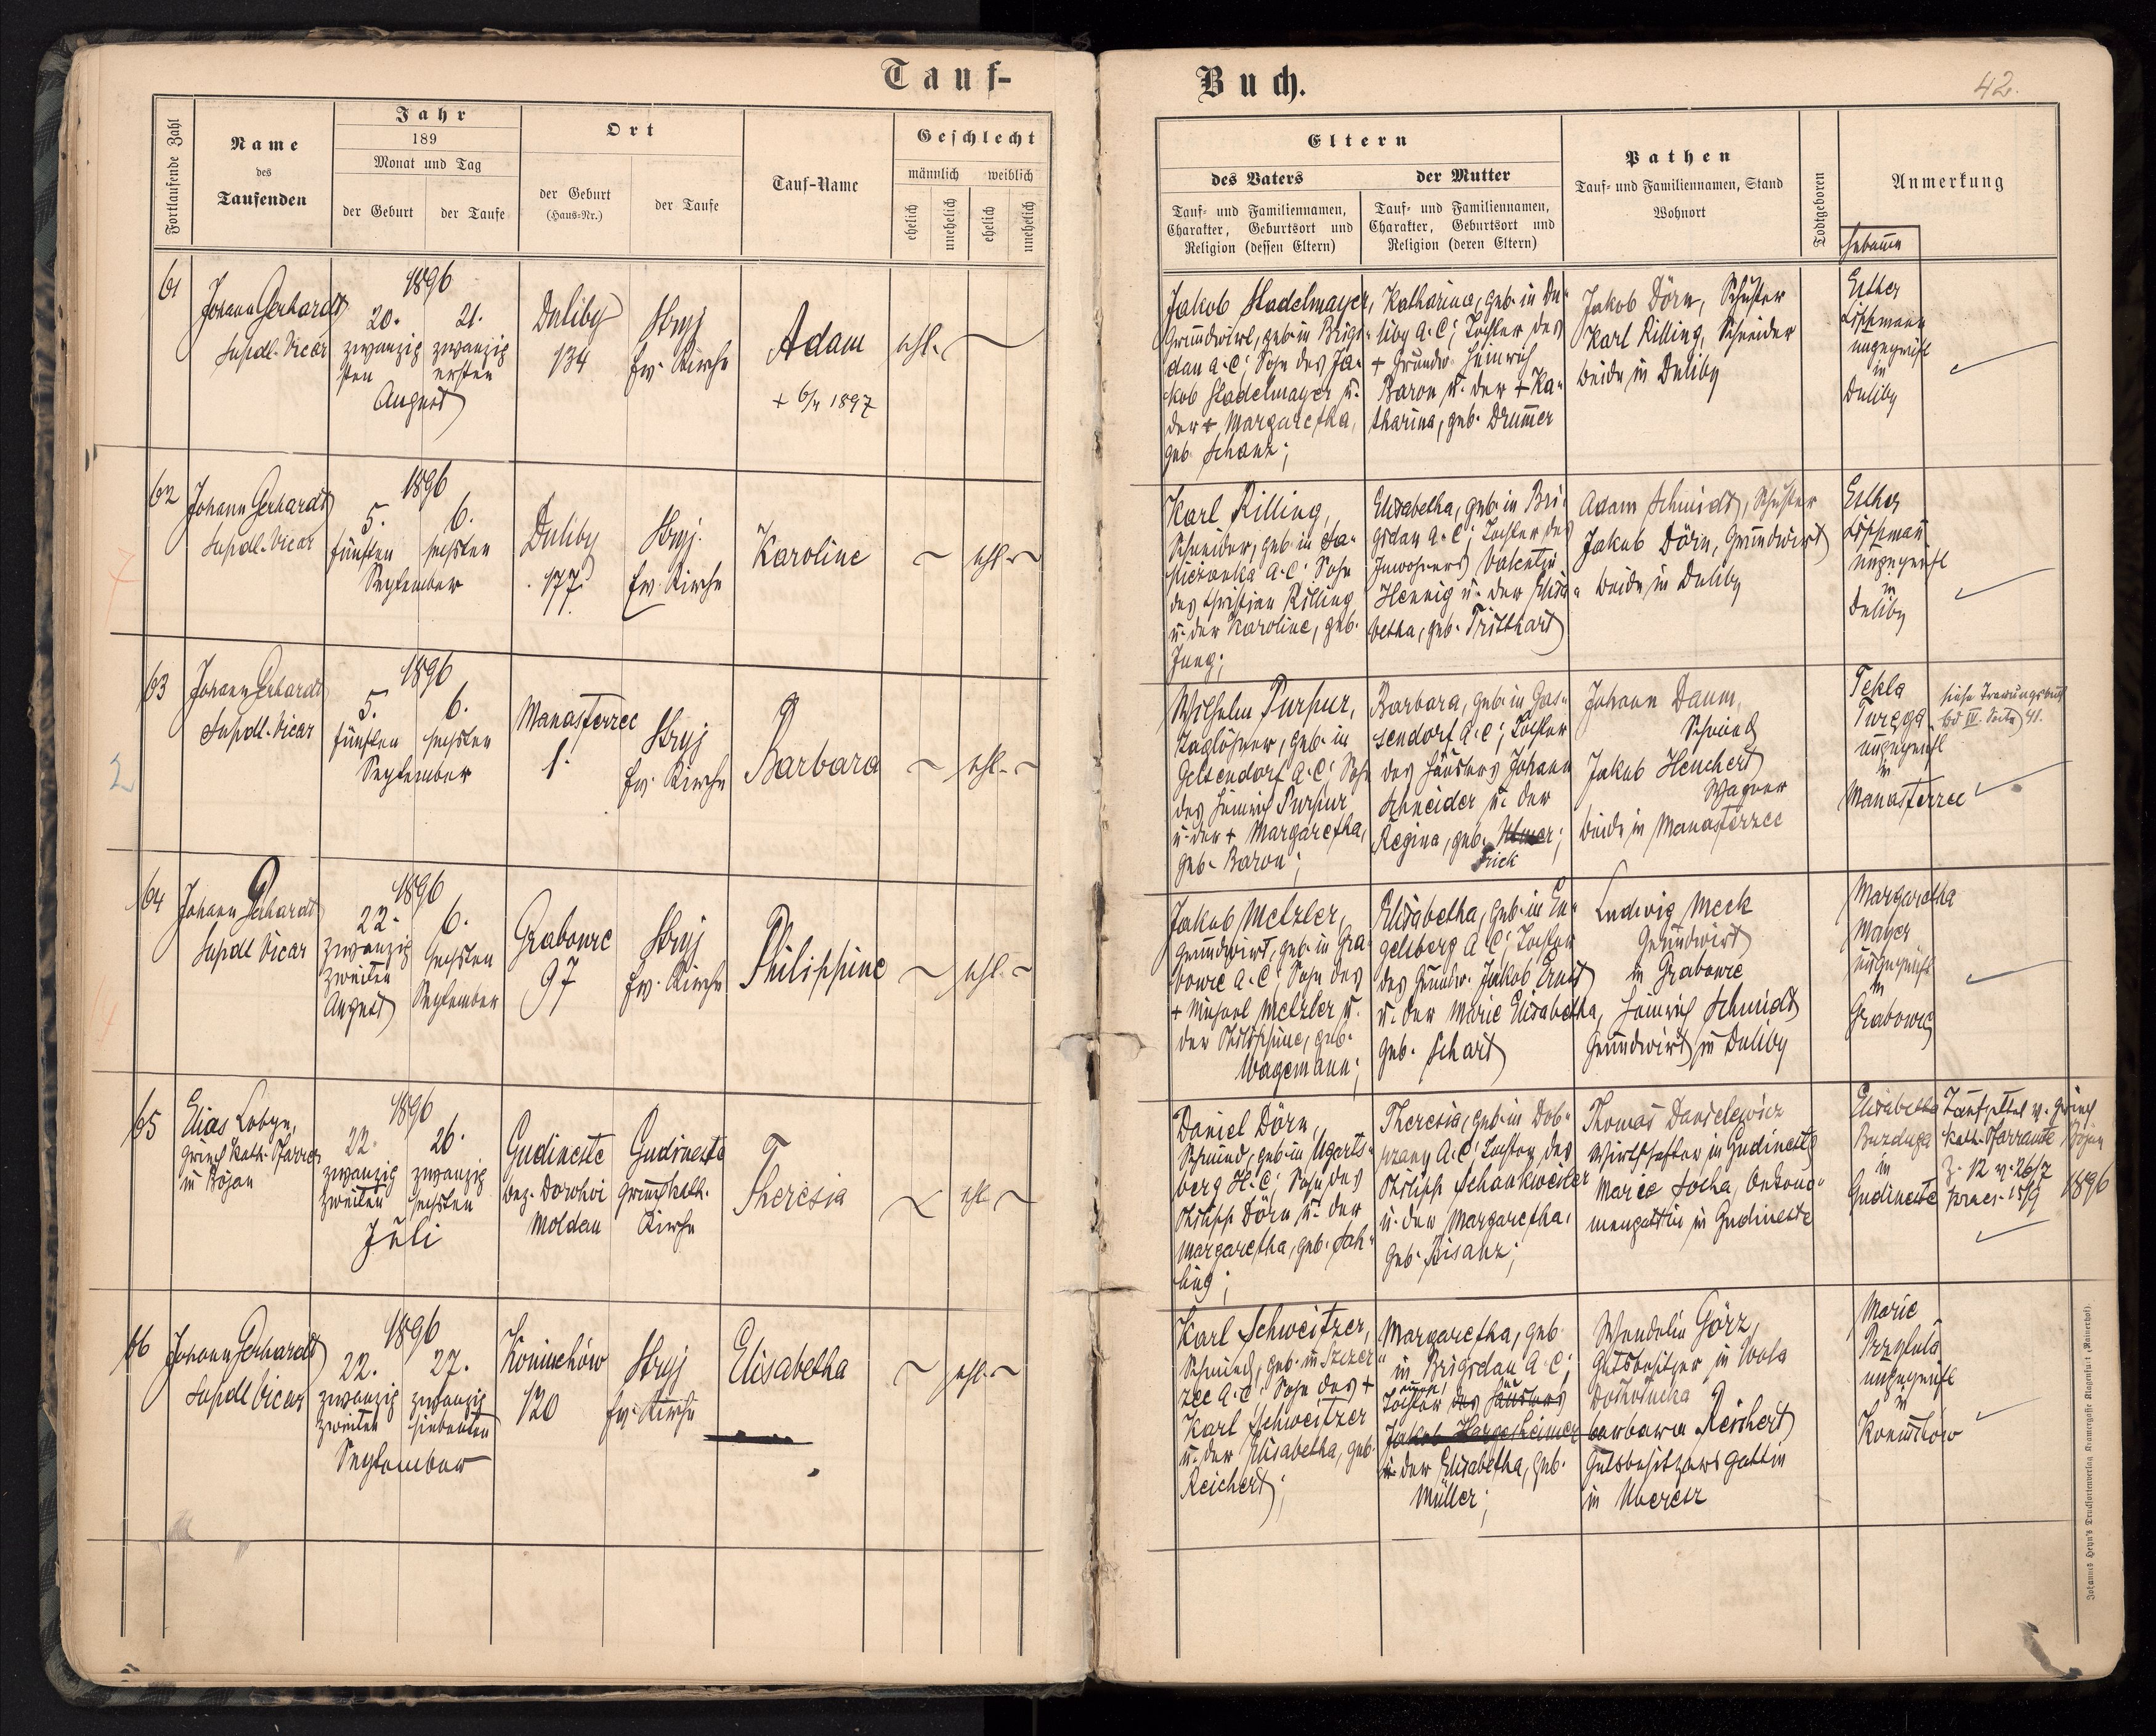 Tauf-
Buch.
42.
Fortlaufende Zahl
Name
des
Taufenden
Jahr
189
Monat und Tag
der Geburt
der Taufe
Ort
der Geburt
(Haus-Nr.)
der Taufe
Tauf-Name
Geschlecht
männlich
weiblich
ehelich
unehelich
ehelich
unehelich
Eltern
des Vaters
der Mutter
Tauf- und Familiennamen,
Charakter, Geburtsort und
Religion (dessen Eltern)
Tauf- und Familiennamen,
Charakter, Geburtsort und
Religion (deren Eltern)
Pathen
Tauf- und Familiennamen, Stand
Wohnort
Todtgeboren
Anmerkung
Hebamme
61
Johann Gerhardt
Supdl. Vicar
1896
20.
zwanzig
sten
21.
zwanzig
ersten
August
Duliby
134
Stryj
ev. Kirche
Adam
+ 6/4 1897
ehl.
Jakob Stadelmayer,
Grundwirt, geb. in Brigi-
dau A.C; Sohn des Ja-
kob Stadelmayer u.
der + Margaretha,
geb. Schanz;
Katharina, geb. in Du-
liby A.C; Tochter des
+ Grundw. Heinrich
Baron u. der + Ka-
tharina, geb. Drummer
Jakob Dörn, Schuster
Karl Rilling, Schneider
beide in Duliby
Esther
Lippmann
ungeprüft
in
Duliby
62
Johann Gerhardt
Supdl. Vicar
1896
5.
fünften
6.
sechsten
September
Duliby
177.
Stryj.
ev. Kirche
Karoline
ehl.
Karl Rilling,
Schneider, geb. in
A.C; Sohn
des Christian Rilling
u. der Karoline, geb.
Jung;
Elisabetha, geb. in Bri-
gidau A.C; Tochter des
Inwohners Valentin
Hennig u. der Elisa-
betha, geb. Tritthart
Adam Schmidt, Schuster
Jakob Dörn, Grundwirt
beide in Duliby
Esther
Lippmann
ungeprüft
in
Duliby
7
63
Johann Gerhardt
Supdl. Vicar
1896
5.
fünften
6.
sechsten
September
Manasterzec
1.
Stryj
ev. Kirche
Barbara
ehl.
Wilhelm Purpur,
Taglöhner, geb. in
Gelsendorf A.C; Sohn
des Heinrich Purpur
u. der + Margaretha,
geb. Baron;
Barbara, geb. in Gas-
sendorf A.C; Tochter
des Häuslers Johann
Schneider u. der
Regina, geb.
Frick
Johann Daum,
Schmied
Jakob Heuchert
Wagner
beide in Manasterzec
Tekla
ungeprüft
in
Manasterzec
siehe Trauungsbuch
Bd IV. Seite 41.
2
64
Johann Gerhardt
Supdl Vicar
1896
22.
zwanzig
zweiten
August
6.
sechsten
September
Grabowce
97
Stryj
ev. Kirche
Philippine
ehl.
Jakob Metzler,
Grundwirt, geb. in Gra-
bowce A.C; Sohn des
+ Michael Metzler u.
der Philippine, geb.
Wagemann;
Elisabetha, geb. in En-
gelsberg A.C; Tochter
des Grundw. Jakob Ernst
u. der Marie Elisabetha,
geb. Schart
Ludwig Meck
Grundwirt
in Grabowce
Heinrich Schmidt
Grundwirt in Duliby
Margaretha
Mayer
ungeprüft
in
Grabowce
4
65
Elias Lobyn,
griech. kath. Pfarrer
in Bojan
1896
22.
zwanzig
zweiten
26.
zwanzig
sechsten
Juli
Gudineste
bez. Dorohoi
Moldau
Gudineste
griech. kath.
Kirche
Theresia
ehl.
Daniel Dörn,
Schmied, geb. in Ugarts-
berg H.C; Sohn des
Philipp Dörn u. der
Margaretha, geb. Sah-
ling;
Theresia, geb. in Dob-
rzany A.C; Tochter des
Philipp Schankweiler
u. der Margaretha,
geb. Bisanz;
Thomas Danielewicz
Wirtschafter in Gudineste
Marie Socha, Oekono-
mengattin in Gudineste
Elisabetha
Burduga
in
Gudineste
Taufzettel v. griech.
kath. Pfarramte Bojan
Z. 12 v. 26/7
praes. 15/9 1896
66
Johann Gerhardt
Supdl Vicar
1896
22.
zwanzig
zweiten
27.
zwanzig
siebenten
September
Koniuchów
120
Stryj
ev. Kirche
Elisabetha
ehl.
Karl Schweitzer,
Schmied, geb. in Szczer-
zec A.C; Sohn des +
Karl Schweitzer
u. der Elisabetha, geb.
Reichert;
Margaretha, geb.
in Brigidau A.C;
Tochter des Häuslers
Jakob Hargesheimer
u. der Elisabetha, geb.
Müller;
Wendelin Görz,
Gutsbesitzer in Wola
Barbara Reichert
Gutsbesitzers Gattin
in Uherce
Marie
Przybula
ungeprüft
in
Koniuchow
Johannes Heyn's Drucksortenverlag Kramergasse Klagenfurt (Mainerhof).